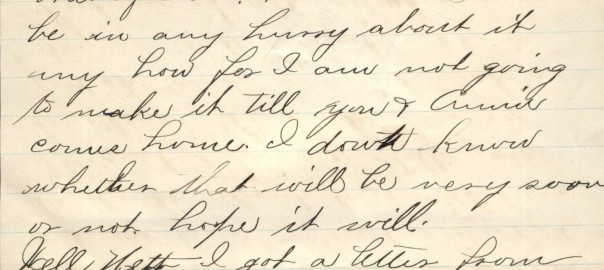 be in any hurry about it
any how for I am not going
to make it till you & Annie
comes home. I dowt know
whether that will be very soon
or not. hope it will.
Well I got a letter from